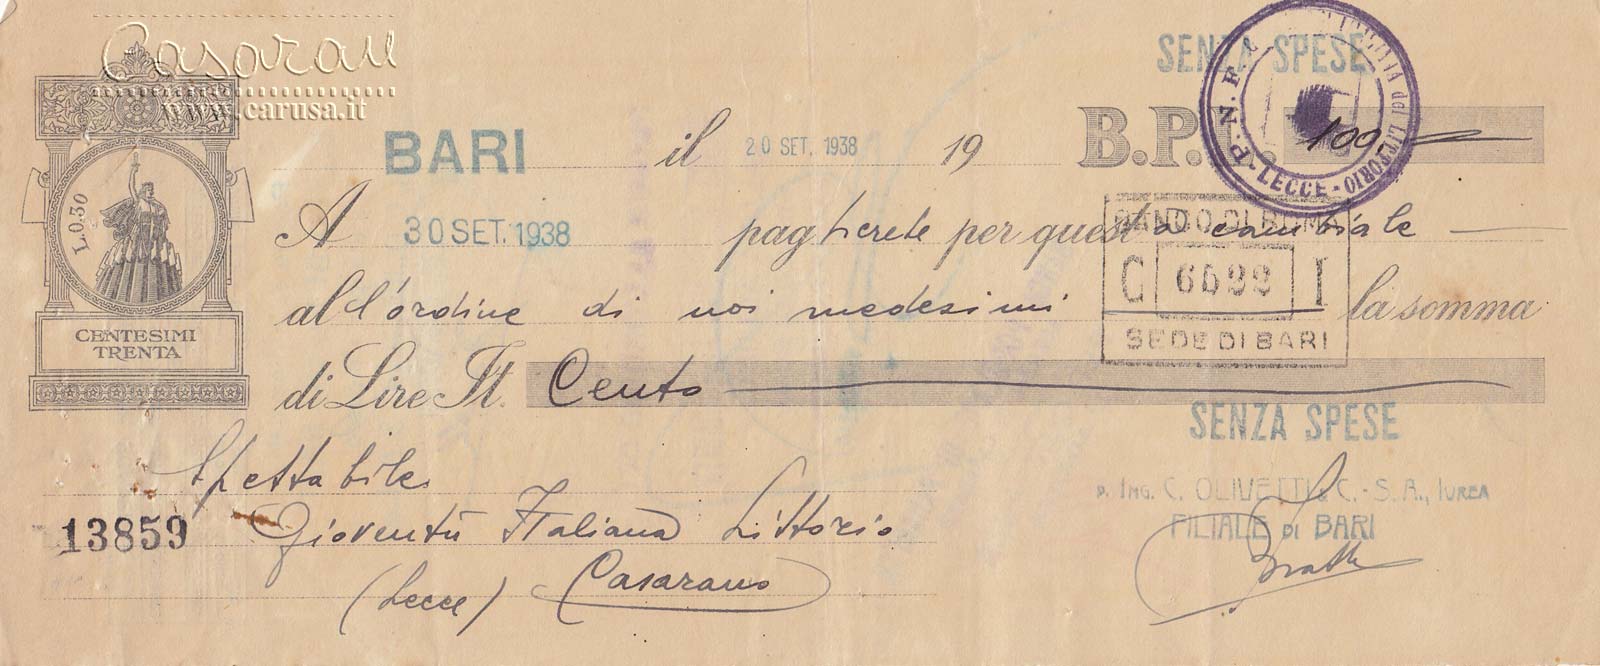 Casaran
www.carusa.it
SENZA SPESE
BARI il 20 SET. 1938 19 B.P. 100
P.N.F. del LITTORIO - LECCE -
L.0.30
A 30 SET. 1938 pagherete per questa cambiale
BANCO DI ROMA
C I
SEDE DI BARI
all'ordine di noi medesimi la somma
CENTESIMI
TRENTA
di Lire It. Cento
SENZA SPESE
Spettabile
p. ING. C. OLIVETTI & C. - S. A., IVREA
FILIALE DI BARI
13859
Gioventù Italiana Littorio
(Lecce) Casarano